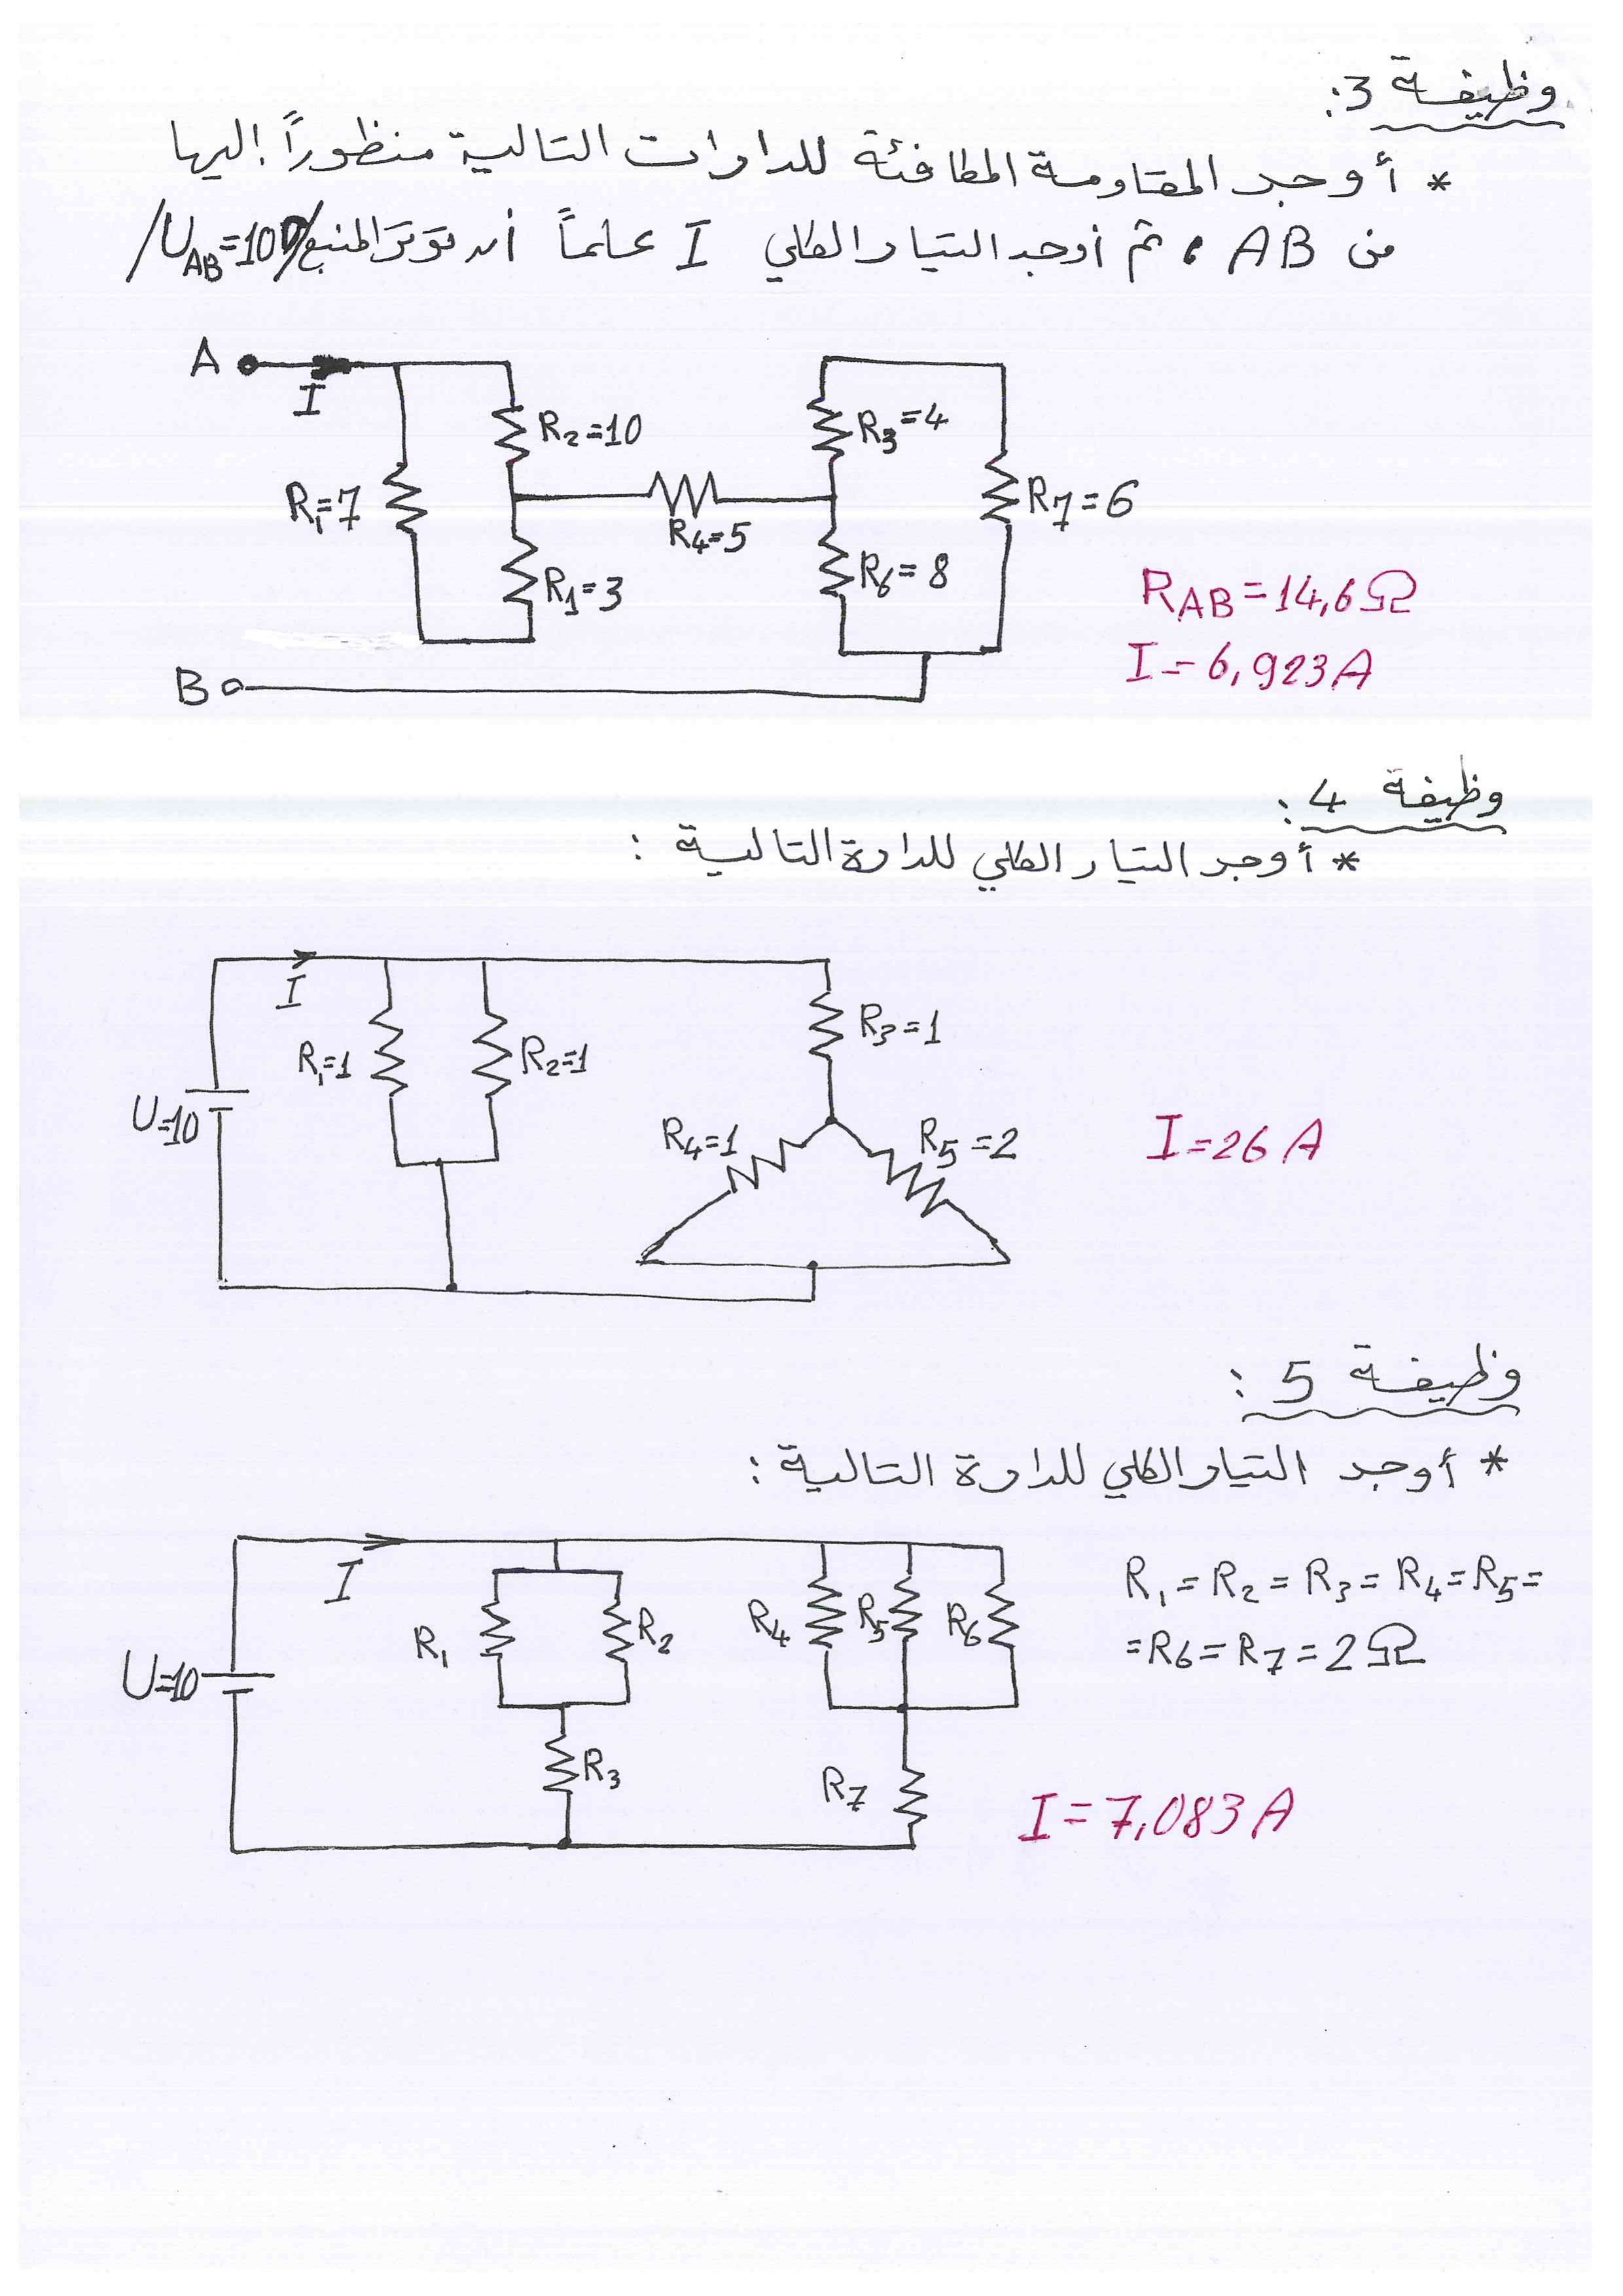 وظيفة 3:
* أوجد المقاومة المكافئة للدارات التالية منظوراً إليها
من AB ، ثم أوجد التيار الكلي I علماً أن توتر المنبع /U_AB=100/
A
I
R₂=10
R₃=4
R₁=7
R₄=5
R₇=6
R₁=3
R₆=8
B
R_AB=14,6Ω
I=6,923A
وظيفة 4:
* أوجد التيار الكلي للدارة التالية :
I
R₁=1
R₂=1
R₃=1
U=10
R₄=1
R₅=2
I=26 A
وظيفة 5 :
* أوجد التيار الكلي للدارة التالية :
I
R₁
R₂
R₄
R₅
R₆
R₁=R₂=R₃=R₄=R₅=
=R₆=R₇=2Ω
U=10
R₃
R₇
I=7,083A